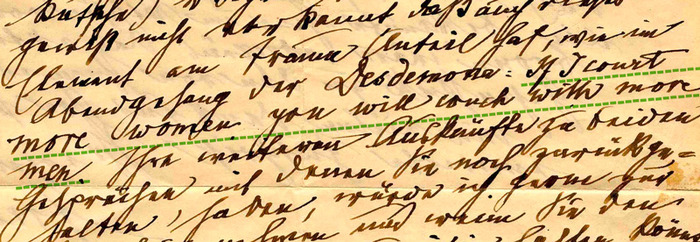 gewiß nicht unbekannt daß auch dieses
Element am Traum Anteil hat, wie im
Abendgesang der Desdemona: If I court
more women you will couch with more
men. Ihre weiteren Auskünfte zu beiden
Gesprächen mit denen Sie noch zurückge=
halten haben, würde ich gerne
und wenn Sie den